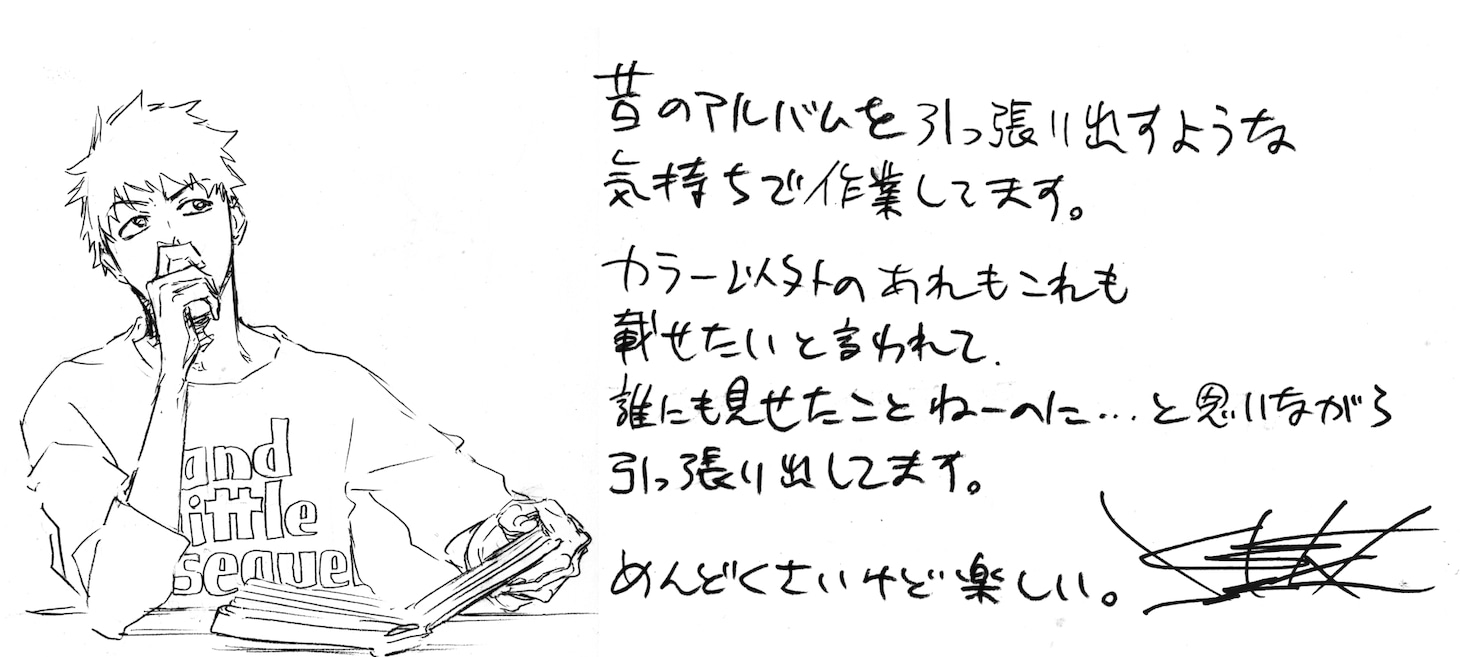 and
ittle
seque
昔のアルバムを引っ張り出すような
気持ちで作業してます。
カラー以外のあれもこれも
載せたいと言われて、
誰にも見せたことねーのに…と思いながら
引っ張り出してます。
めんどくさいけど楽しい。